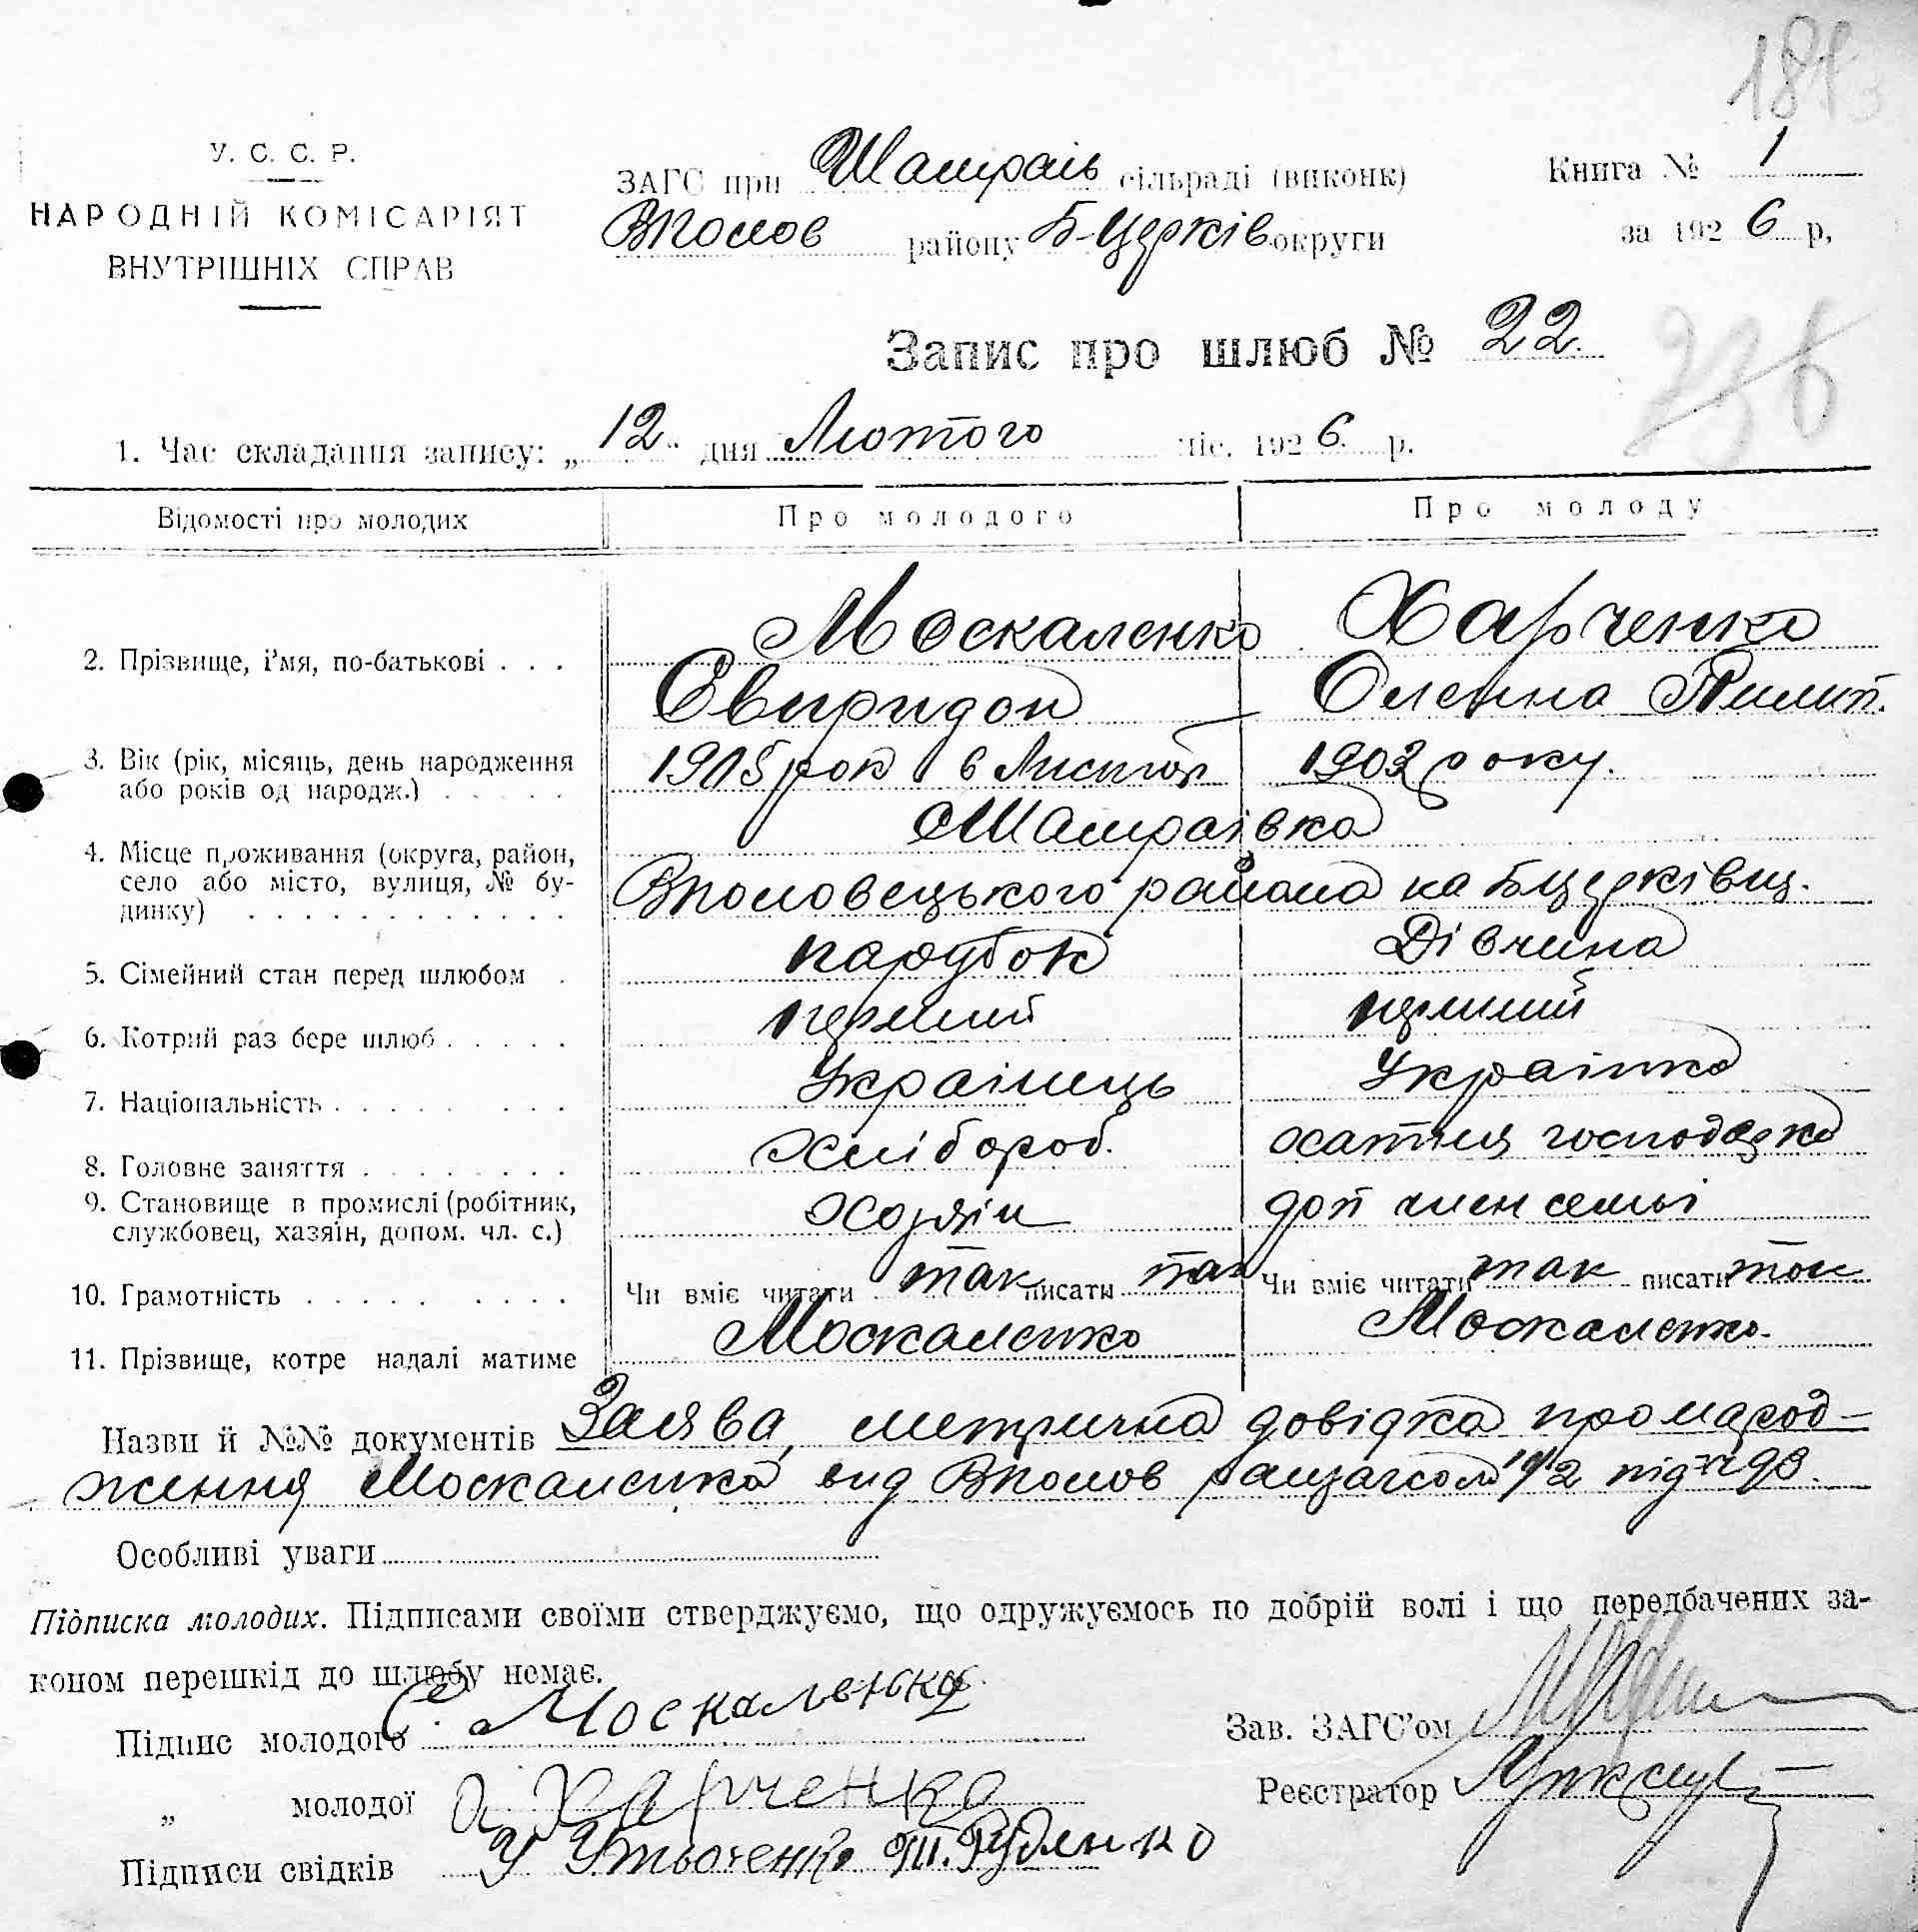 У. С. С. Р.
НАРОДНІЙ КОМІСАРІЯТ
ВНУТРІШНІХ СПРАВ
ЗАГС при Шамраів сільраді (виконк)
Вполов району Б-Церків округи
Книга № 1
за 1926 р,
Запис про шлюб № 22.
1. Час складання запису: „12" дня Лютого міс. 1926 р.
Відомості про молодих Про молодого Про молоду
Москаленко Харченко
2. Прізвище, і'мя, по-батькові . . . Свиридон Оленна Пилип.
3. Вік (рік, місяць, день народження 1905 рок 6 Листоп 1902 року.
або років од народж.)
Шамраівка
4. Місце проживання (округа, район,
село або місто, вулиця, № бу- Вполовецького района на Бцерківщ.
динку)
5. Сімейний стан перед шлюбом парубок Дівчина
6. Котрий раз бере шлюб перший перший
7. Національність Украінець Украінка
8. Головне заняття хлібороб. хатня господарка
9. Становище в промислі (робітник, Хозяін доп член семьі
службовец, хазяїн, допом. чл. с.)
10. Грамотність Чи вміє читати так писати так Чи вміє читати так писати так
11. Прізвище, котре надалі матиме Москаленко Москаленко.
Назви й №№ документів Заява, метрична довідка про народ-
ження Москаленка вид Вполов райзагсом під № 98.
Особливі уваги
Підписка молодих. Підписами своїми стверджуємо, що одружуємось по добрій волі і що передбачених за-
коном перешкід до шлюбу немає.
Підпис молодого С. Москаленко
Зав. ЗАГС'ом
„ молодої Харченко
Реєстратор
Підписи свідків Руденко